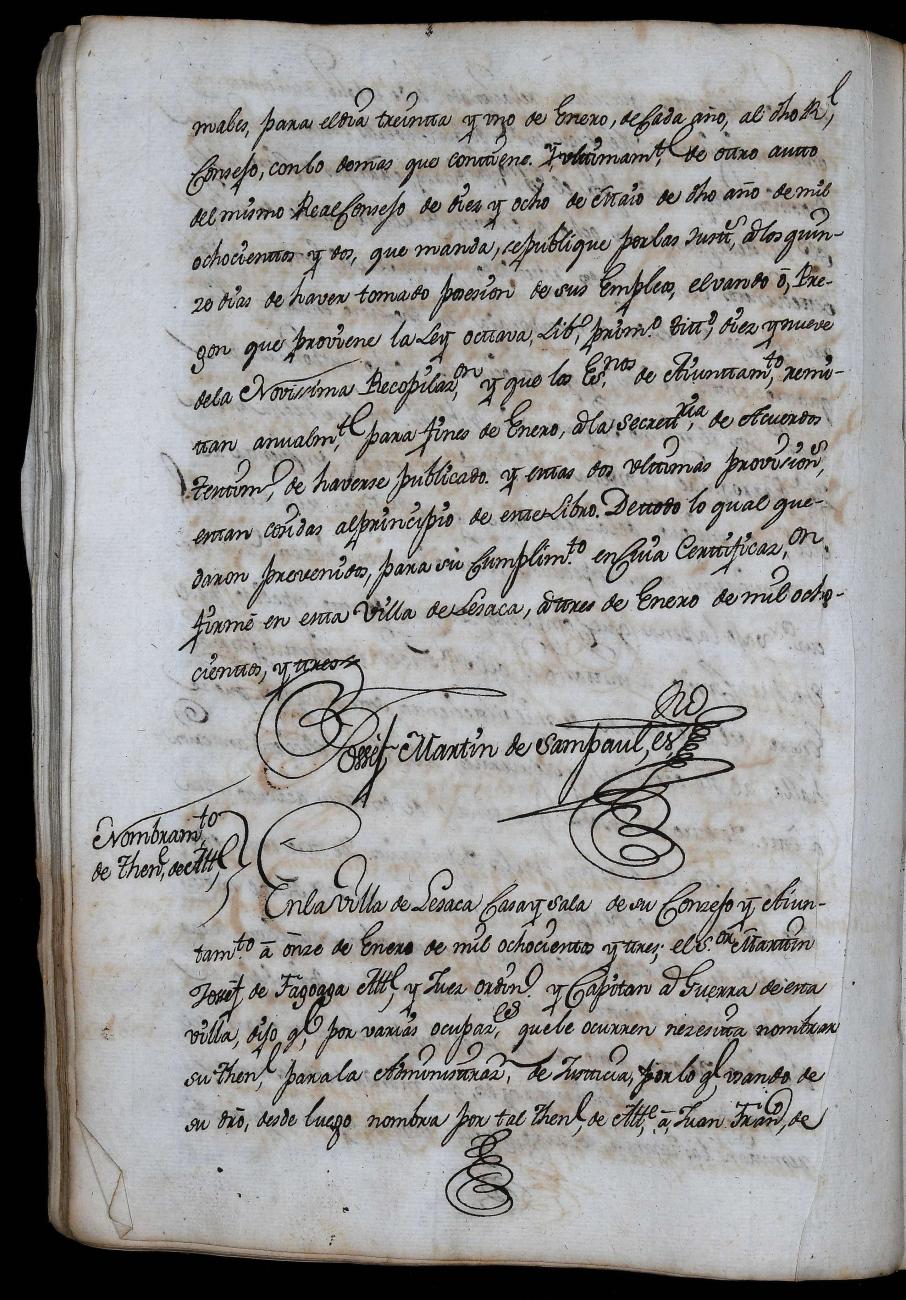 males, para el dia treintta y uno de Enero, de Cada año, al dho Rl,
Consejo, con lo demas que conttiene. Y, ulttimamte, de ottro autto
del mismo Real Consejo de diez y ocho de Maio de dho año de mil
ochocienttos y dos, que manda, se publique por las Justts, a los quin-
ze dias de haver tomado posesion de sus Empleos, el vando ō, Pre-
gon que proviene la Ley octtava, Libo, primo. titto, diez y nueve
de la Novissima Recopilazon, y que los Esnos, de Aiunttamto, remi-
ttan anualmte, para fines de Enero, a la Secrettria, de Acuerdos
Testtimo, de haverse publicado. y esttas dos ulttimas provisiones,
esttan cosidas al principio de estte Libro. De ttodo lo qual que-
daron prevenidos, para su Cumplimto. en Cuia Certtificazon,
firmé en estta Villa de Lesaca, a ttres de Enero de mil ocho-
cienttos, y ttres
Josef Martin de Sampaul, esno
Nombramto
de Thene, de Alle,
En la villa de Lesaca Casa y sala de su Conzejo y Aiun-
tamto. ā ōnze de Enero de mil ochocienttos y ttres; el Sor Marttin
Josef, de Fagoaga Alle, y Juez ordino. y Capitan a Guerra de estta
villa, dijo qe, por varias ocupazes, que le ocurren nezesitta nombrar
su Thene, para la Administtrazn, de Justticia, por lo qe usando de
su dro, desde luego nombra por tal Thene, de Alle, ā, Juan Frano, de